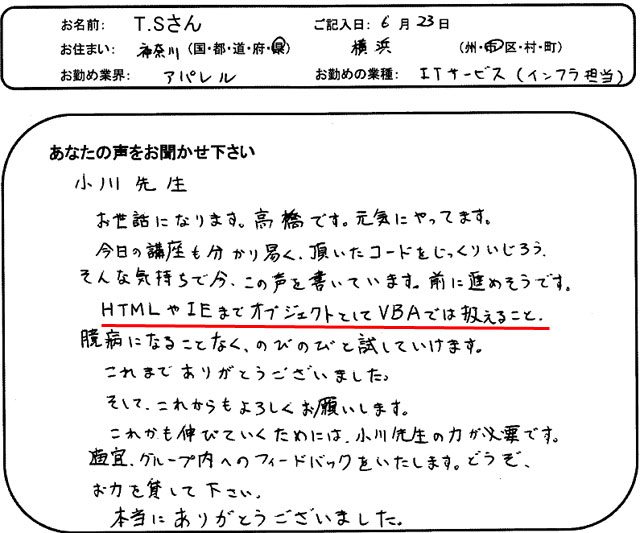 お名前: T.Sさん ご記入日: 6月23日
お住まい: 神奈川 (国・都・道・府・県) 横浜 (州・市・区・村・町)
お勤め業界: アパレル お勤めの業種: ITサービス(インフラ担当)
あなたの声をお聞かせ下さい
小川先生
お世話になります。高橋です。元気にやってます。
今日の講座も分かり易く、頂いたコードをじっくりいじろう、
そんな気持ちで今、この声を書いています。前に進めそうです。
HTMLやIEまでオブジェクトとしてVBAでは扱えること、
臆病になることなく、のびのびと試していけます。
これまでありがとうございました。
そして、これからもよろしくお願いします。
これかも伸びていくためには、小川先生の力が必要です。
適宜、グループ内へのフィードバックをいたします。どうぞ、
お力を貸して下さい。
本当にありがとうございました。